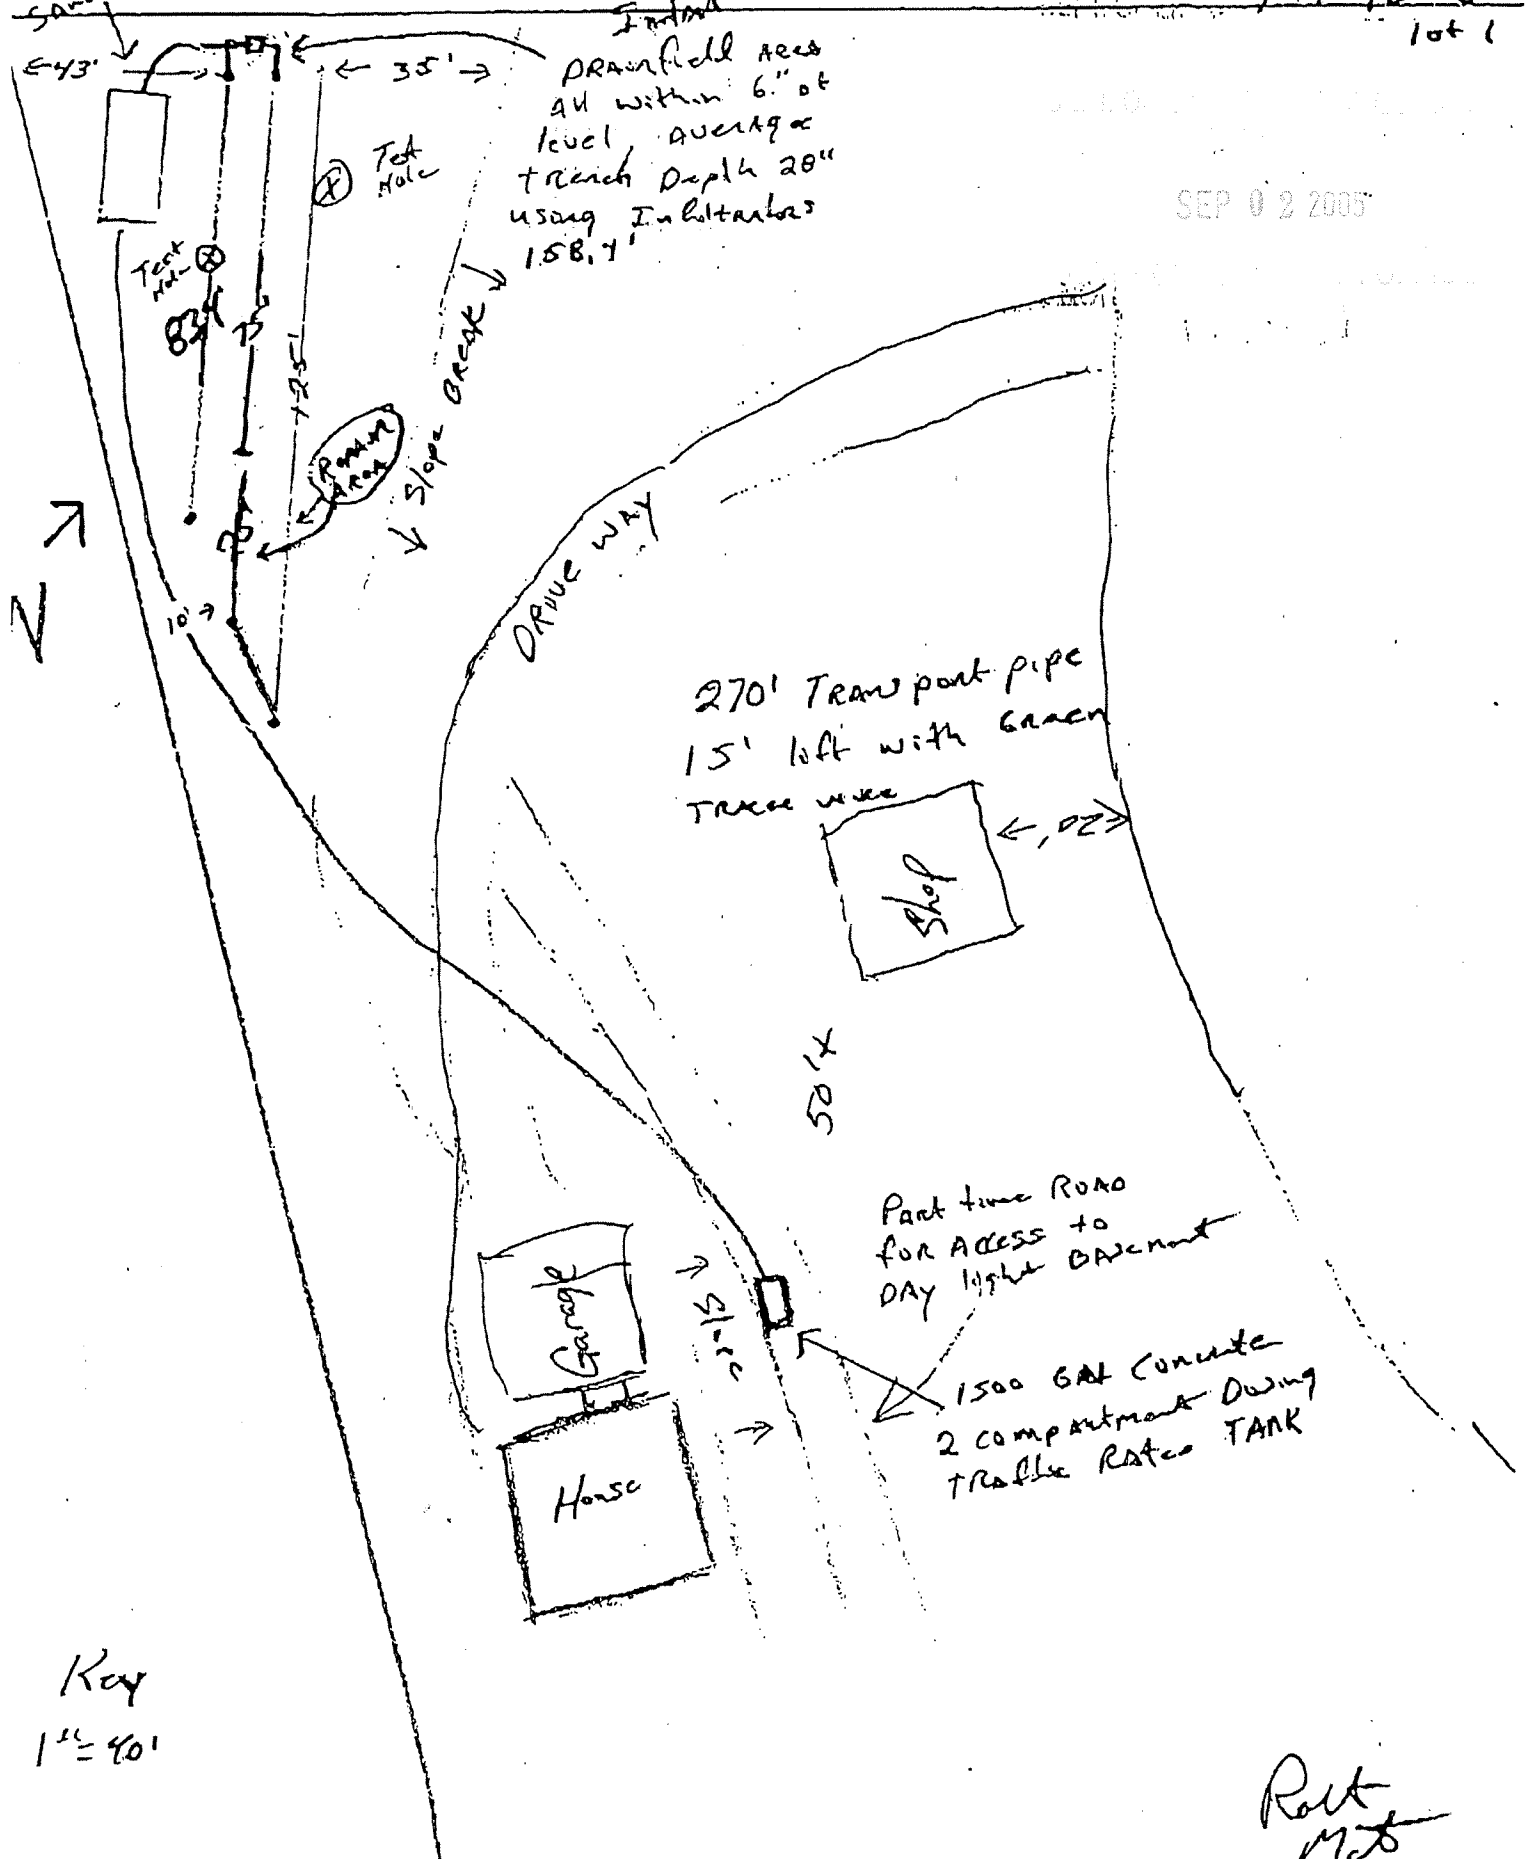 lot 1
43'
35'
DRAinfield AREA
All within 6" of
level, AVERAGE
trench Depth 28"
using Infiltrators
158.4'
Test
Hole
SEP 02 2005
Test
Hole
83.4
75'
125'
Repair
AREA
Slope BREAK
N
10'
DRIVE WAY
270' TRANSport pipe
15' lift with GREEN
TRACE WIRE
20'
Shop
50'±
Part time ROAD
for Access to
DAY light BASEment
Garage
Slope
1500 GAL Concrete
2 compartment Dosing
traffic Rated TANK
House
Key
1"=40'